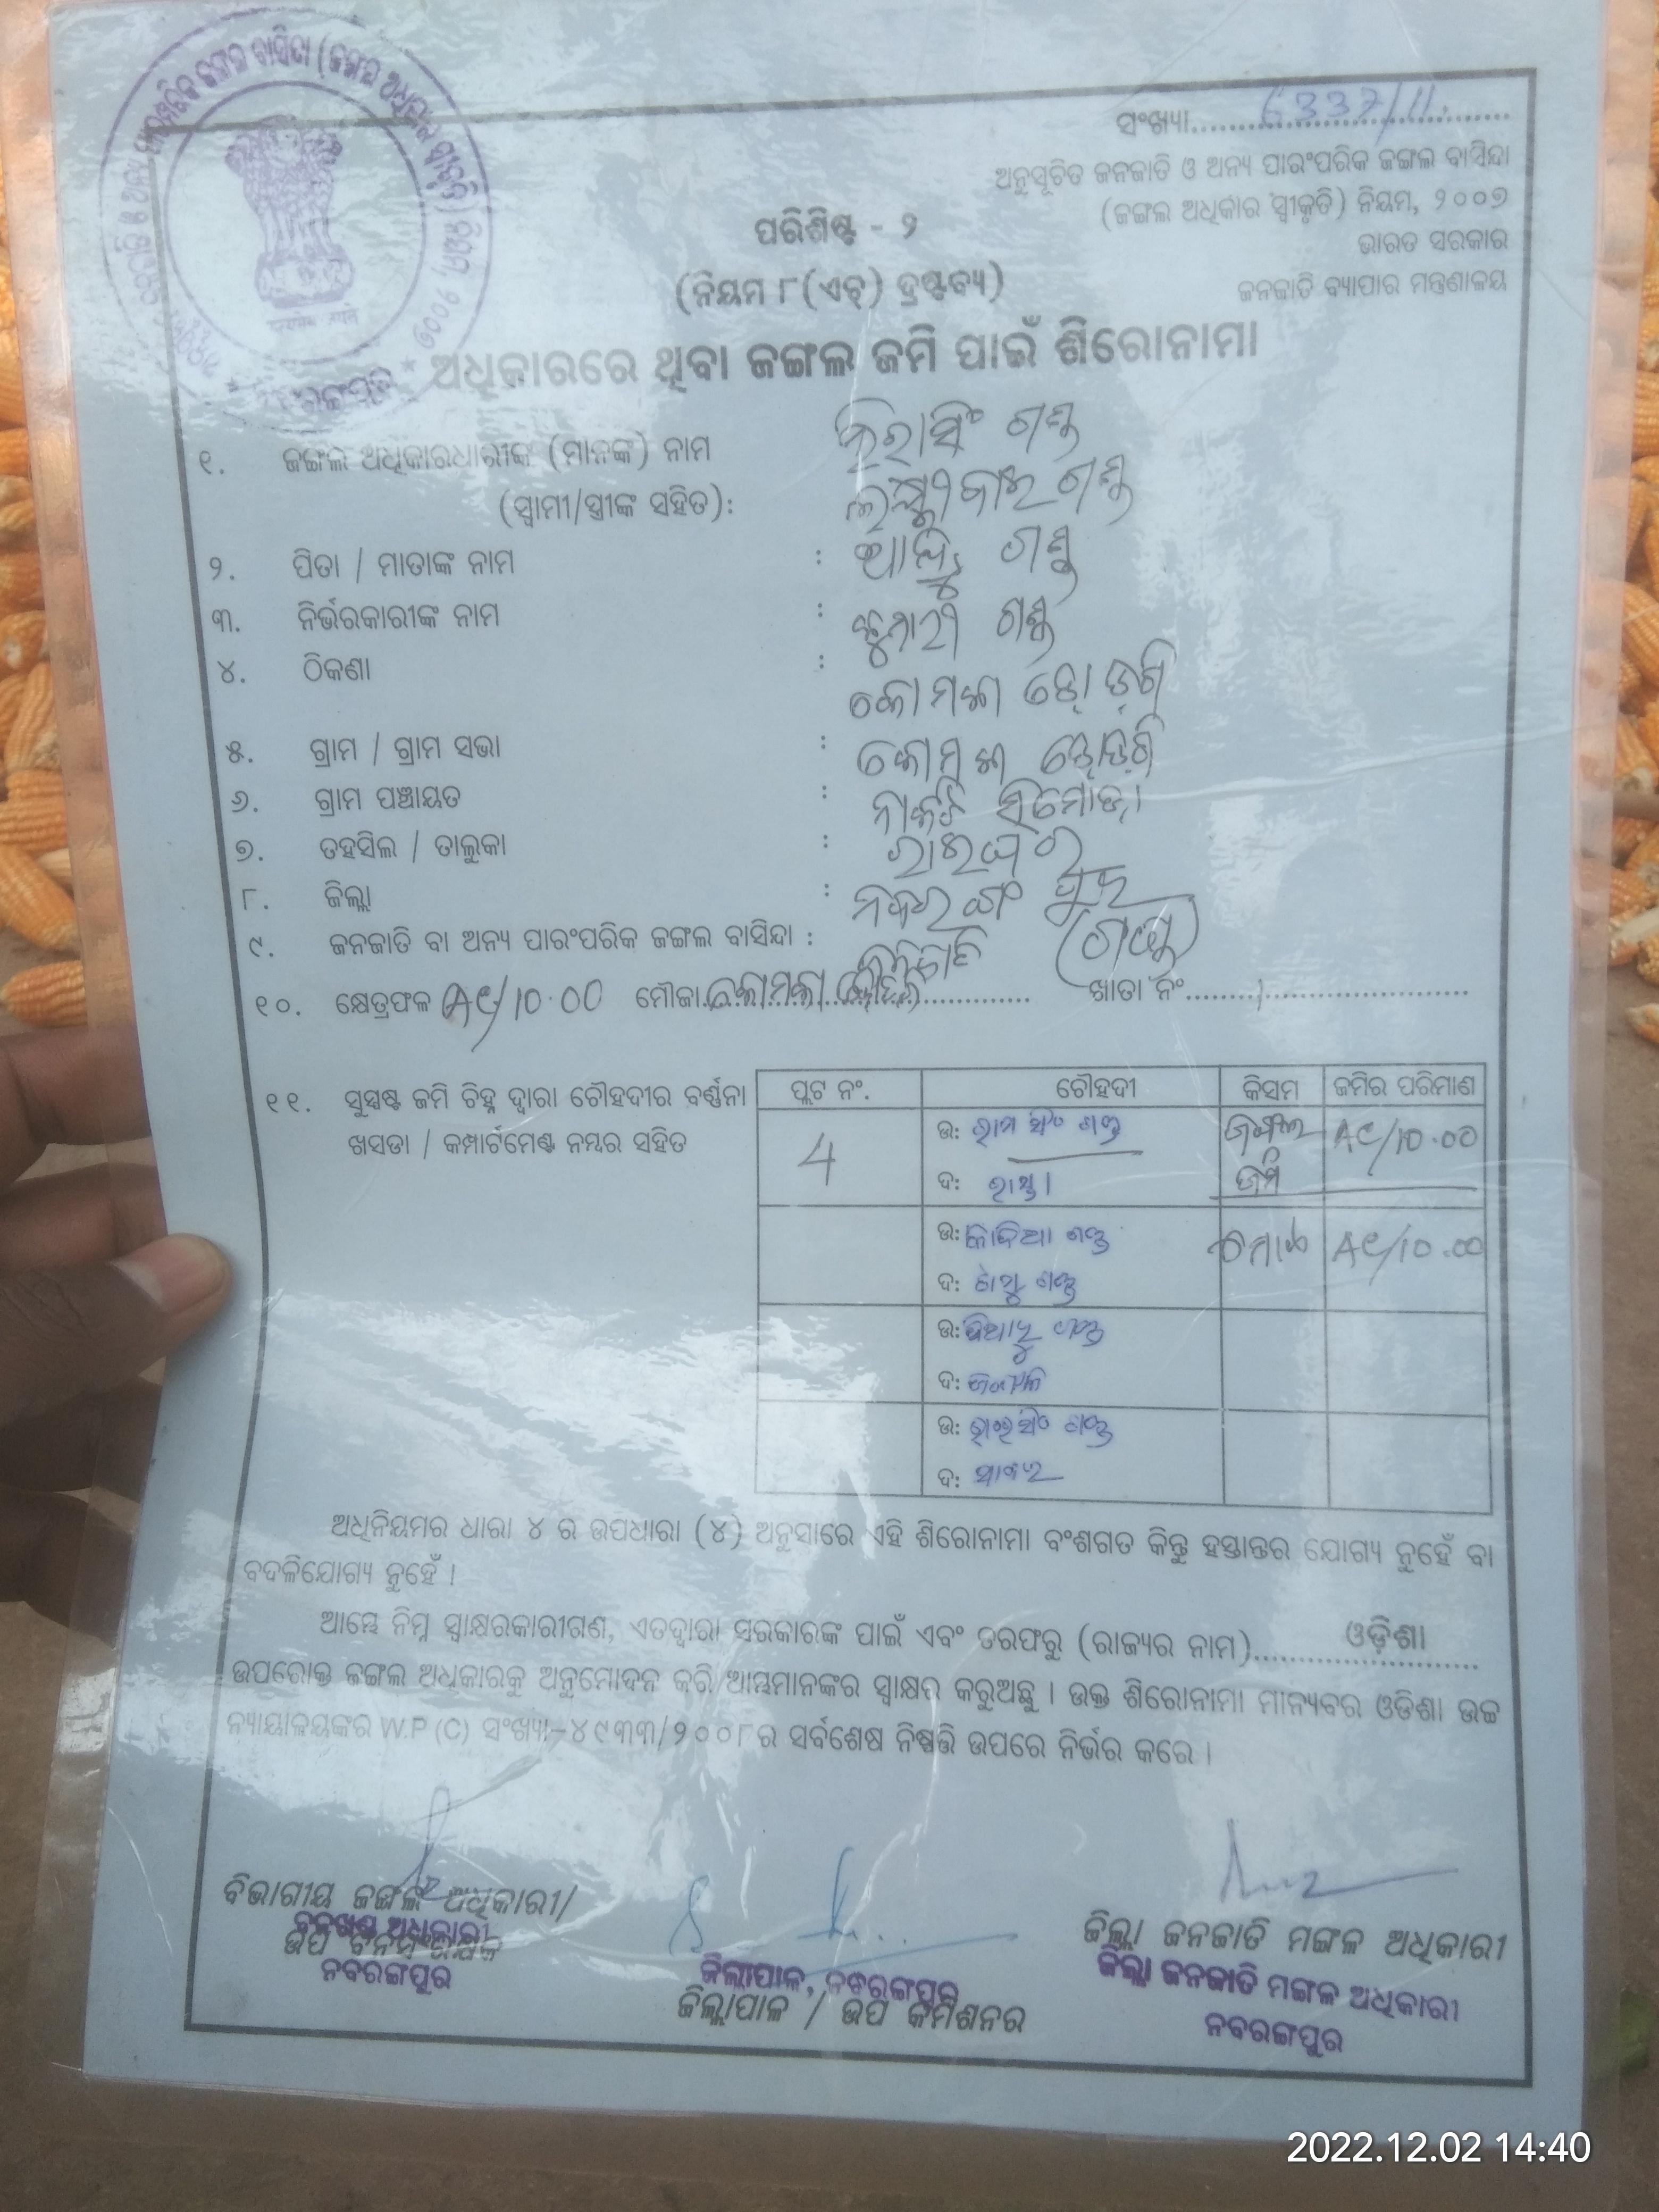 ସଂଖ୍ୟା 6337/11
ଅନୁସୂଚିତ ଜନଜାତି ଓ ଅନ୍ୟ ପାରଂପରିକ ଜଙ୍ଗଲ ବାସିନ୍ଦା
(ଜଙ୍ଗଲ ଅଧିକାର ସ୍ୱୀକୃତି) ନିୟମ, ୨୦୦୭
ଭାରତ ସରକାର
ଜନଜାତି ବ୍ୟାପାର ମନ୍ତ୍ରଣାଳୟ
ପରିଶିଷ୍ଟ - ୨
(ନିୟମ ୮(ଏଚ୍) ଦ୍ରଷ୍ଟବ୍ୟ)
ଅଧିକାରରେ ଥିବା ଜଙ୍ଗଲ ଜମି ପାଇଁ ଶିରୋନାମା
୧. ଜଙ୍ଗଲ ଅଧିକାରଧାରୀଙ୍କ (ମାନଙ୍କ) ନାମ ହିରାସିଂ ଗଣ୍ଡ
(ସ୍ୱାମୀ/ସ୍ତ୍ରୀଙ୍କ ସହିତ): ଗଣ୍ଡ
୨. ପିତା / ମାତାଙ୍କ ନାମ : ଗଣ୍ଡ
୩. ନିର୍ଭରକାରୀଙ୍କ ନାମ : ଗଣ୍ଡ
୪. ଠିକଣା :
୫. ଗ୍ରାମ / ଗ୍ରାମ ସଭା :
୬. ଗ୍ରାମ ପଞ୍ଚାୟତ :
୭. ତହସିଲ / ତାଲୁକା : ରାଇଘର
୮. ଜିଲ୍ଲା : ନବରଙ୍ଗପୁର
୯. ଜନଜାତି ବା ଅନ୍ୟ ପାରଂପରିକ ଜଙ୍ଗଲ ବାସିନ୍ଦା : (ଗଣ୍ଡ)
୧୦. କ୍ଷେତ୍ରଫଳ AC/10.00 ମୌଜା ଖାତା ନଂ
୧୧. ସୁସ୍ପଷ୍ଟ ଜମି ଚିହ୍ନ ଦ୍ୱାରା ଚୌହଦୀର ବର୍ଣ୍ଣନା
ଖସଡା / କମ୍ପାର୍ଟମେଣ୍ଟ ନମ୍ବର ସହିତ
ପ୍ଲଟ ନଂ. ଚୌହଦୀ କିସମ ଜମିର ପରିମାଣ
4 ଉ: ରାମ ସିଂ ଗଣ୍ଡ ଜଙ୍ଗଲ AC/10.00
ଦ: ରାସ୍ତା ଜମି
ଉ: ଗଣ୍ଡ ମୋଟ AC/10.00
ଦ: ଗଣ୍ଡ
ଉ: ଗଣ୍ଡ
ଦ:
ଉ: ଗଣ୍ଡ
ଦ:
ଅଧିନିୟମର ଧାରା ୪ ର ଉପଧାରା (୪) ଅନୁସାରେ ଏହି ଶିରୋନାମା ବଂଶଗତ କିନ୍ତୁ ହସ୍ତାନ୍ତର ଯୋଗ୍ୟ ନୁହେଁ ବା
ବଦଳିଯୋଗ୍ୟ ନୁହେଁ ।
ଆମ୍ଭେ ନିମ୍ନ ସ୍ୱାକ୍ଷରକାରୀଗଣ, ଏତଦ୍ଦ୍ୱାରା ସରକାରଙ୍କ ପାଇଁ ଏବଂ ତରଫରୁ (ରାଜ୍ୟର ନାମ) ଓଡ଼ିଶା
ଉପରୋକ୍ତ ଜଙ୍ଗଲ ଅଧିକାରକୁ ଅନୁମୋଦନ କରି ଆମ୍ଭମାନଙ୍କର ସ୍ୱାକ୍ଷର କରୁଅଛୁ । ଉକ୍ତ ଶିରୋନାମା ମାନ୍ୟବର ଓଡିଶା ଉଚ୍ଚ
ନ୍ୟାୟାଳୟଙ୍କର W.P (C) ସଂଖ୍ୟା-୪୯୩୩/୨୦୦୮ ର ସର୍ବଶେଷ ନିଷ୍ପତ୍ତି ଉପରେ ନିର୍ଭର କରେ ।
ବିଭାଗୀୟ ଜଙ୍ଗଲ ଅଧିକାରୀ/
ବନଖଣ୍ଡ ଅଧିକାରୀ
ଉପ ବନସଂରକ୍ଷକ
ନବରଙ୍ଗପୁର
ଜିଲ୍ଲାପାଳ, ନବରଙ୍ଗପୁର
ଜିଲ୍ଲାପାଳ / ଉପ କମିଶନର
ଜିଲ୍ଲା ଜନଜାତି ମଙ୍ଗଳ ଅଧିକାରୀ
ଜିଲ୍ଲା ଜନଜାତି ମଙ୍ଗଳ ଅଧିକାରୀ
ନବରଙ୍ଗପୁର
2022.12.02 14:40